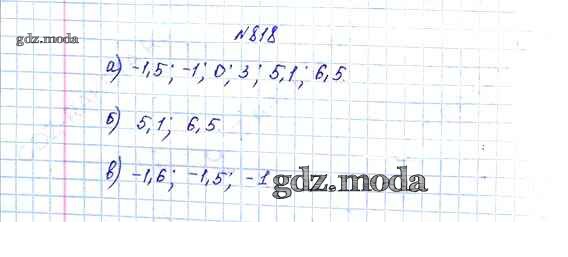 №818
gdz.moda
а) -1,5; -1; 0; 3; 5,1; 6,5.
б) 5,1; 6,5.
в) -1,6; -1,5; -1
gdz.moda